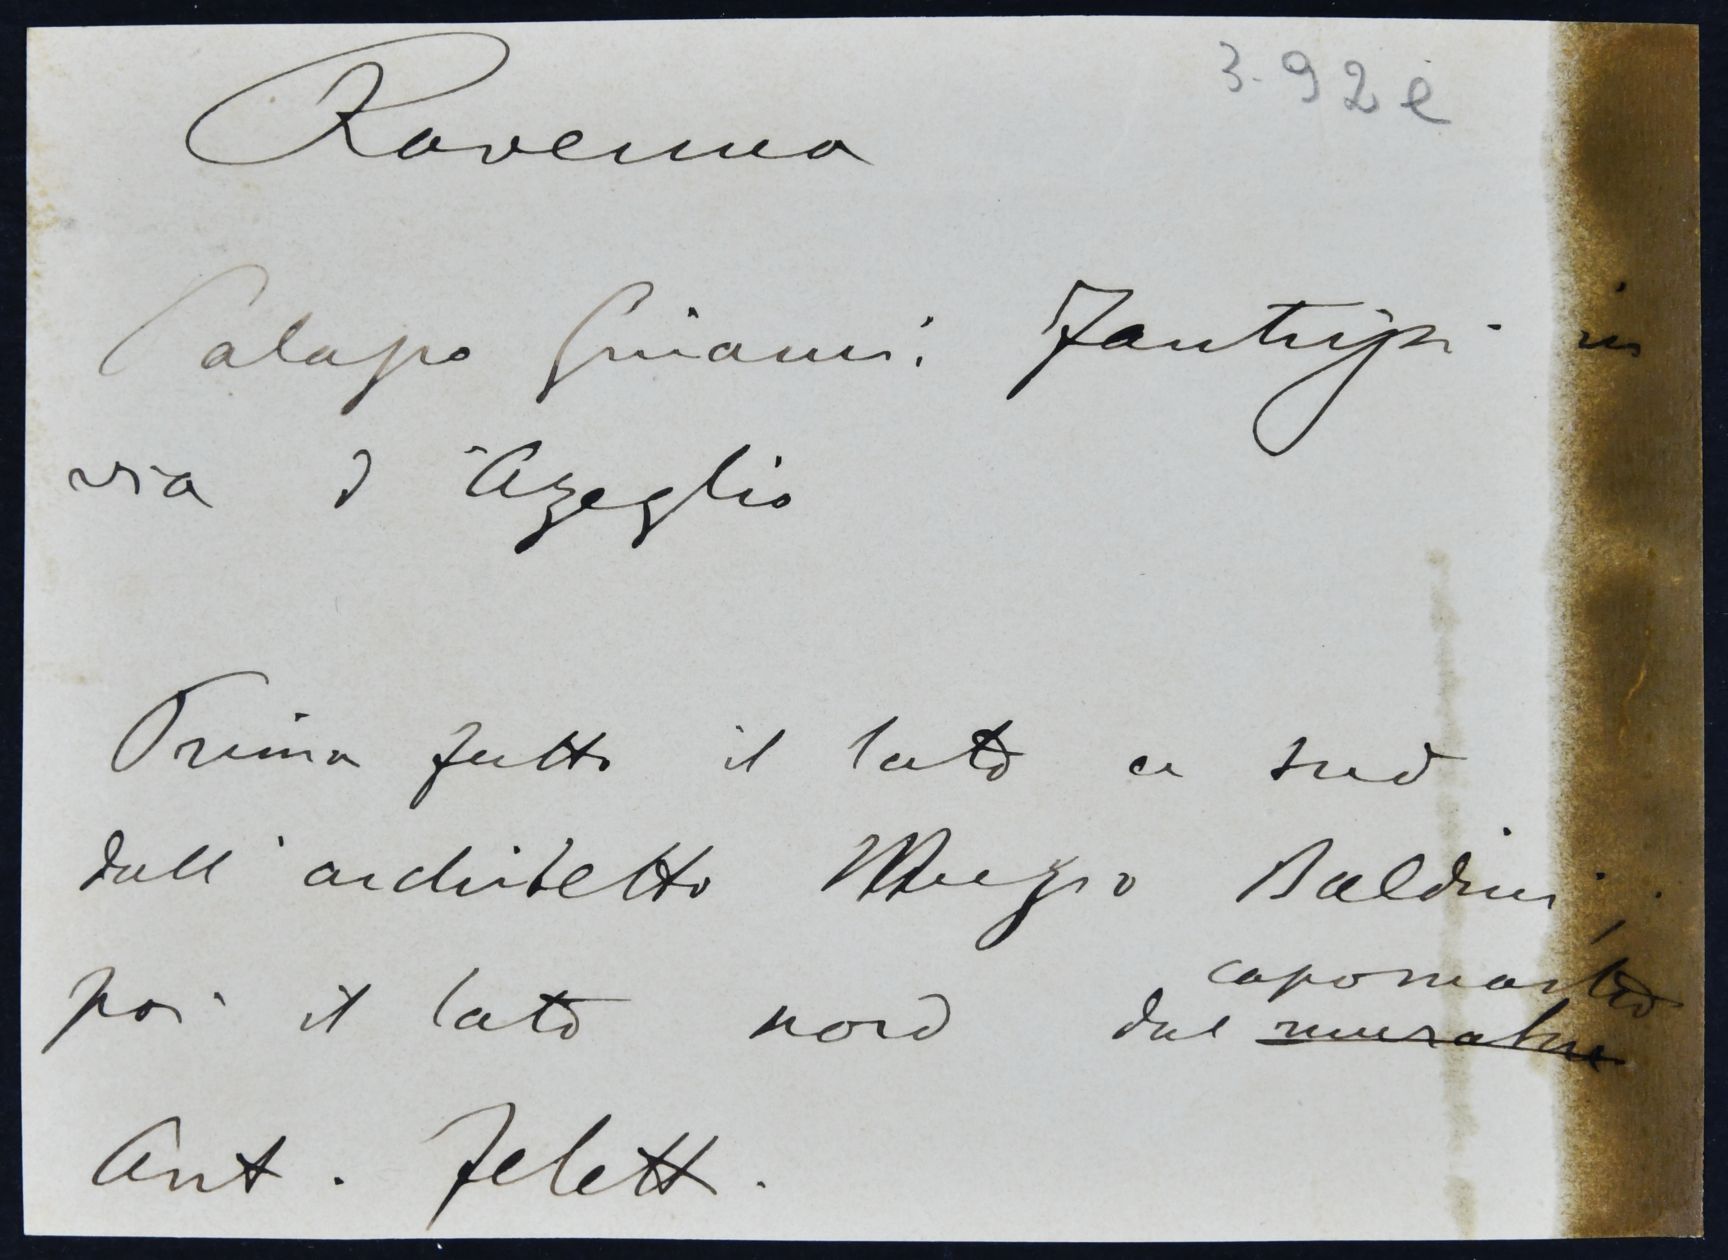 3.92 e
Ravenna
Palazzo Guiccioli. Fantuzzi in
via d'Azeglio
Prima fatto il lato a sud
dall'architetto Muzio Baldini,
capomastro
poi il lato nord dal muratore
Ant. Felett.